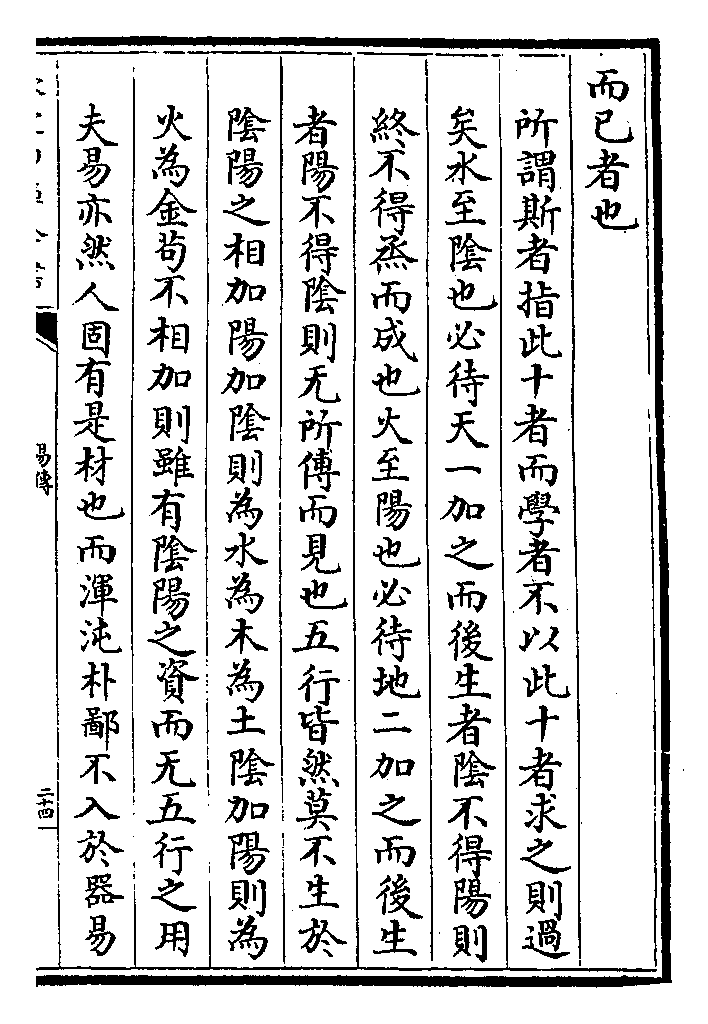 而已者也
所謂斯者指此十者而學者不以此十者求之則過
矣水至陰也必待天一加之而後生者陰不得陽則
終不得烝而成也火至陽也必待地二加之而後生
者陽不得陰則无所傅而見也五行皆然莫不生於
陰陽之相加陽加陰則為水為木為土陰加陽則為
火為金茍不相加則雖有陰陽之資而无五行之用
夫易亦然人固有是材也而渾沌朴鄙不入於器易
易傳
二十四